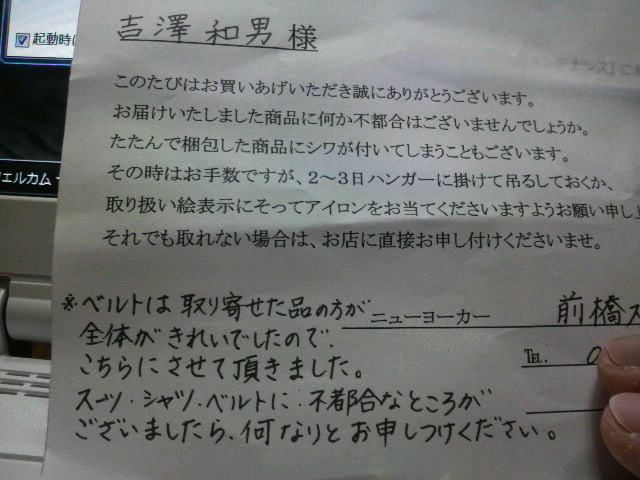 起動時
ェルカム
吉澤和男様
このたびはお買いあげいただき誠にありがとうございます。
お届けいたしました商品に何か不都合はございませんでしょうか。
たたんで梱包した商品にシワが付いてしまうこともございます。
その時はお手数ですが、２～３日ハンガーに掛けて吊るしておくか、
取り扱い絵表示にそってアイロンをお当てくださいますようお願い申し上
それでも取れない場合は、お店に直接お申し付けくださいませ。
ニューヨーカー 前橋
TEL. 0
※ベルトは取り寄せた品の方が
全体がきれいでしたので、
こちらにさせて頂きました。
スーツ・シャツ・ベルトに、不都合なところが
ございましたら、何なりとお申しつけください。